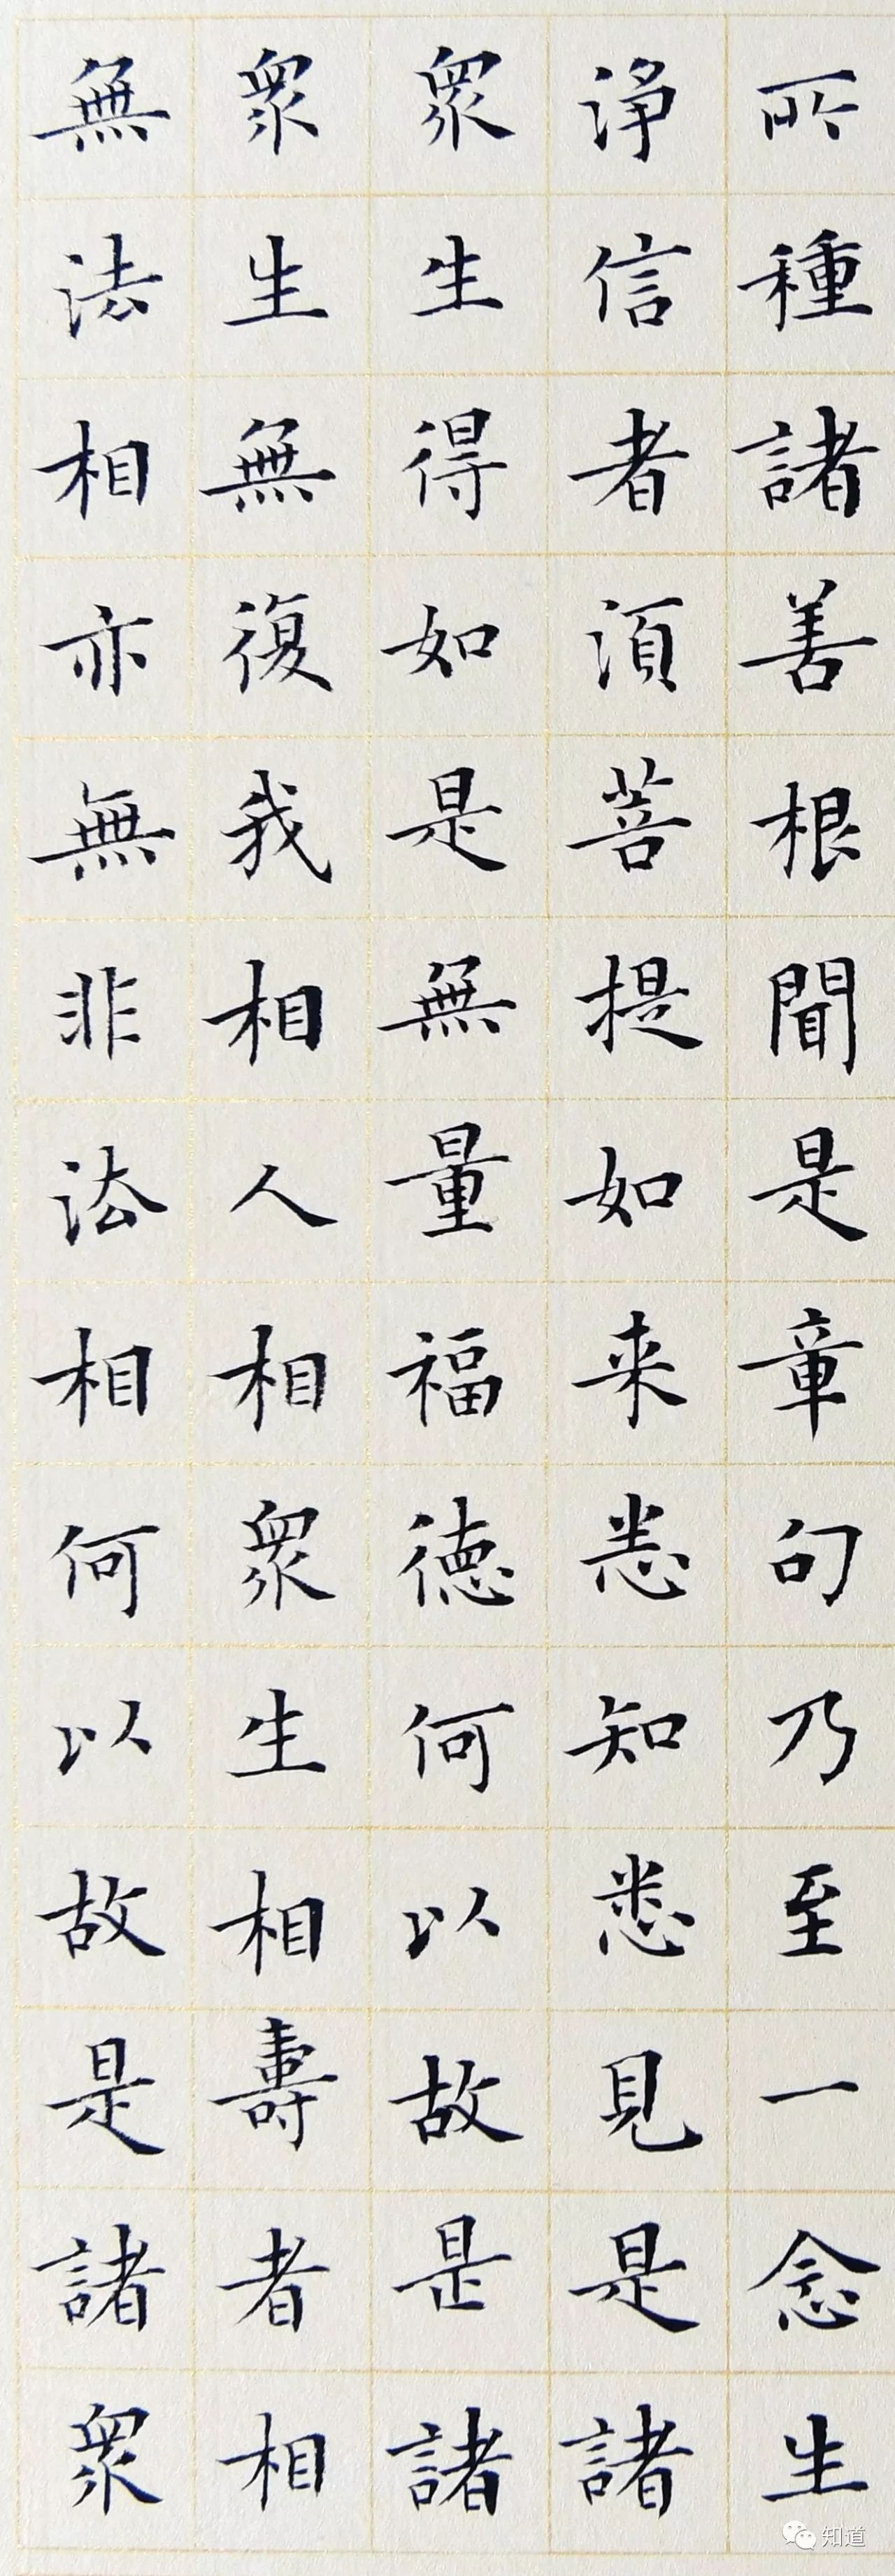 所種諸善根聞是章句乃至一念生
净信者湏菩提如来悉知悉見是諸
衆生得如是無量福德何以故是諸
衆生無復我相人相衆生相壽者相
無法相亦無非法相何以故是諸衆
知道